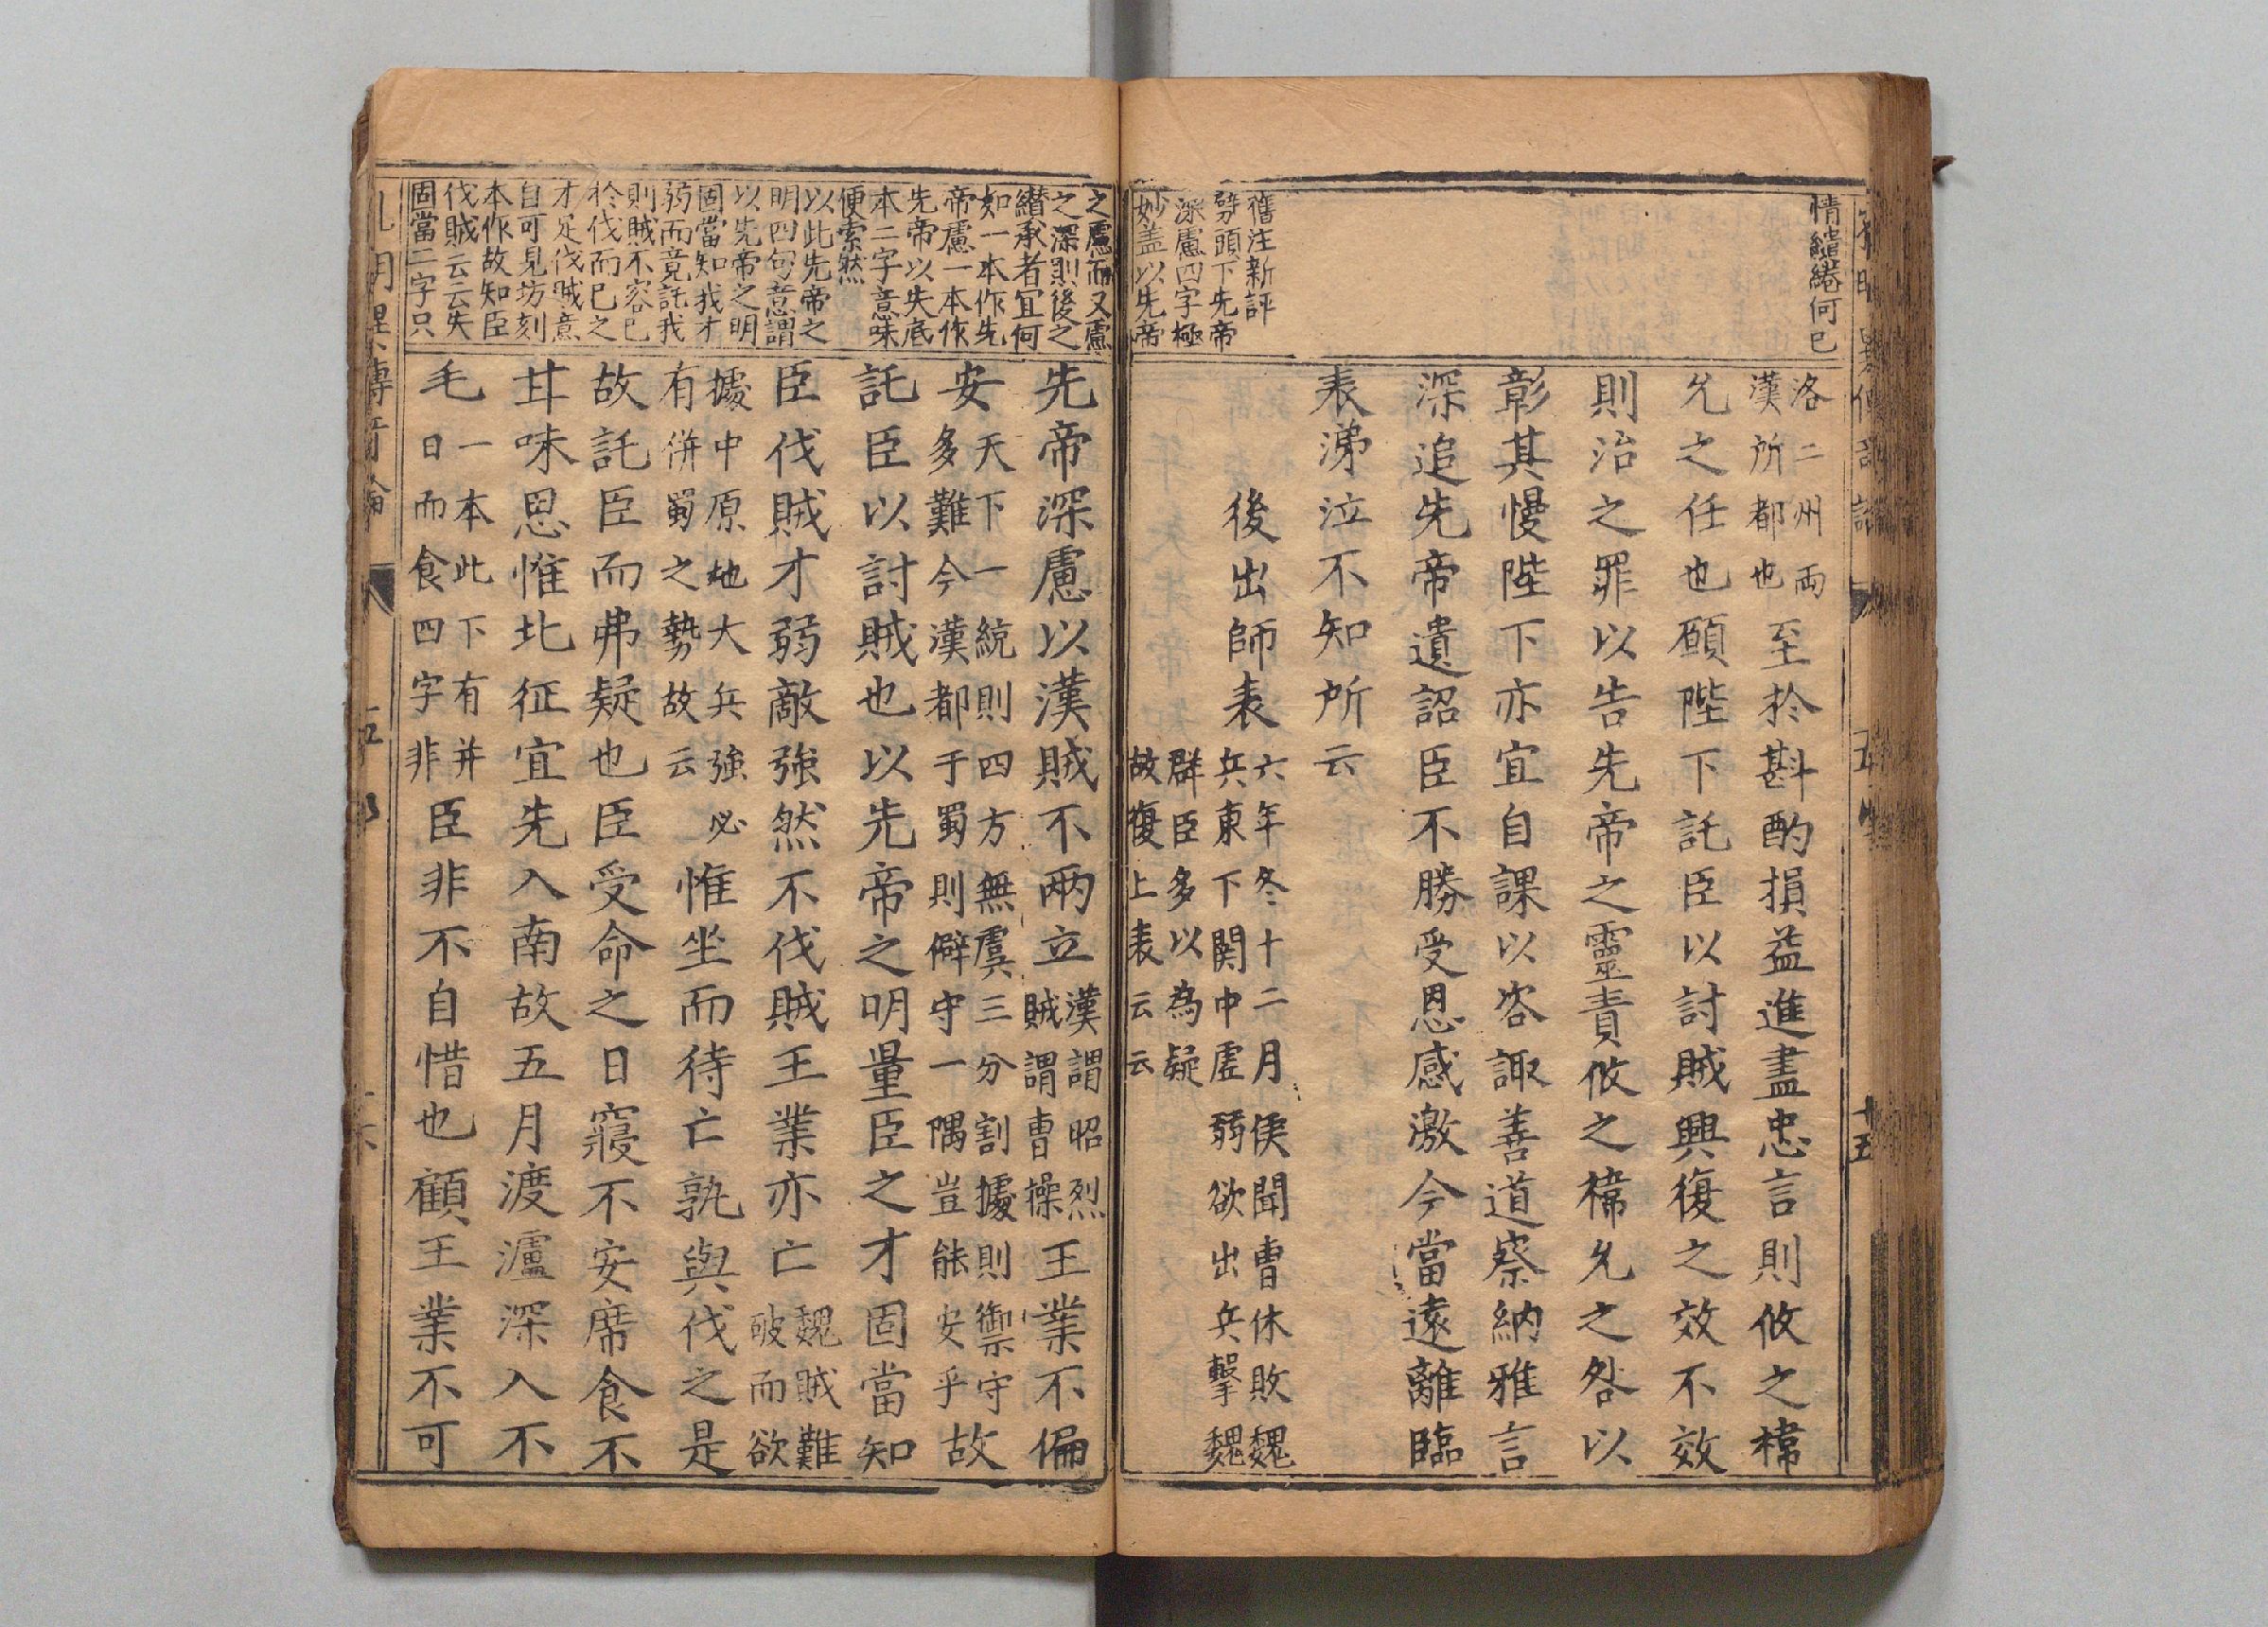 情繾綣何已
洛二州兩
漢所都也
至於斟酌損益進盡忠言則攸之褘
允之任也願陛下託臣以討賊興復之效不效
則治之罪以告先帝之靈責攸之褘允之咎以
彰其慢陛下亦宜自課以咨諏善道察納雅言
深追先帝遺詔臣不勝受恩感激今當遠離臨
表涕泣不知所云
舊注新評
劈頭下先帝
深慮四字極
妙盖以先帝
後出師表
六年冬十二月侯聞曹休敗魏
兵東下関中虛弱欲出兵擊魏
群臣多以為疑
故復上表云云
之慮而又慮
之深則後之
纘承者宜何
如一本作先
帝慮一本作
先帝以失底
本二字意味
便索然
以此先帝之
明四句意謂
以先帝之明
固當知我才
弱而竟託我
則賊不容已
於伐而已之
才足伐賊意
自可見坊刻
本作故知臣
伐賊云云失
固當二字只
先帝深慮以漢賊不兩立
漢謂昭烈
賊謂曹操
王業不偏
安
天下一統則四方無虞三分割據則禦守
多難今漢都于蜀則僻守一隅豈能安乎
故
託臣以討賊也以先帝之明量臣之才固當知
臣伐賊才弱敵強然不伐賊王業亦亡
魏賊難
破而欲
據中原地大兵強必
有併蜀之勢故云
惟坐而待亡孰與伐之是
故託臣而弗疑也臣受命之日寢不安席食不
甘味思惟北征宜先入南故五月渡瀘深入不
毛
一本此下有并
日而食四字非
臣非不自惜也顧王業不可